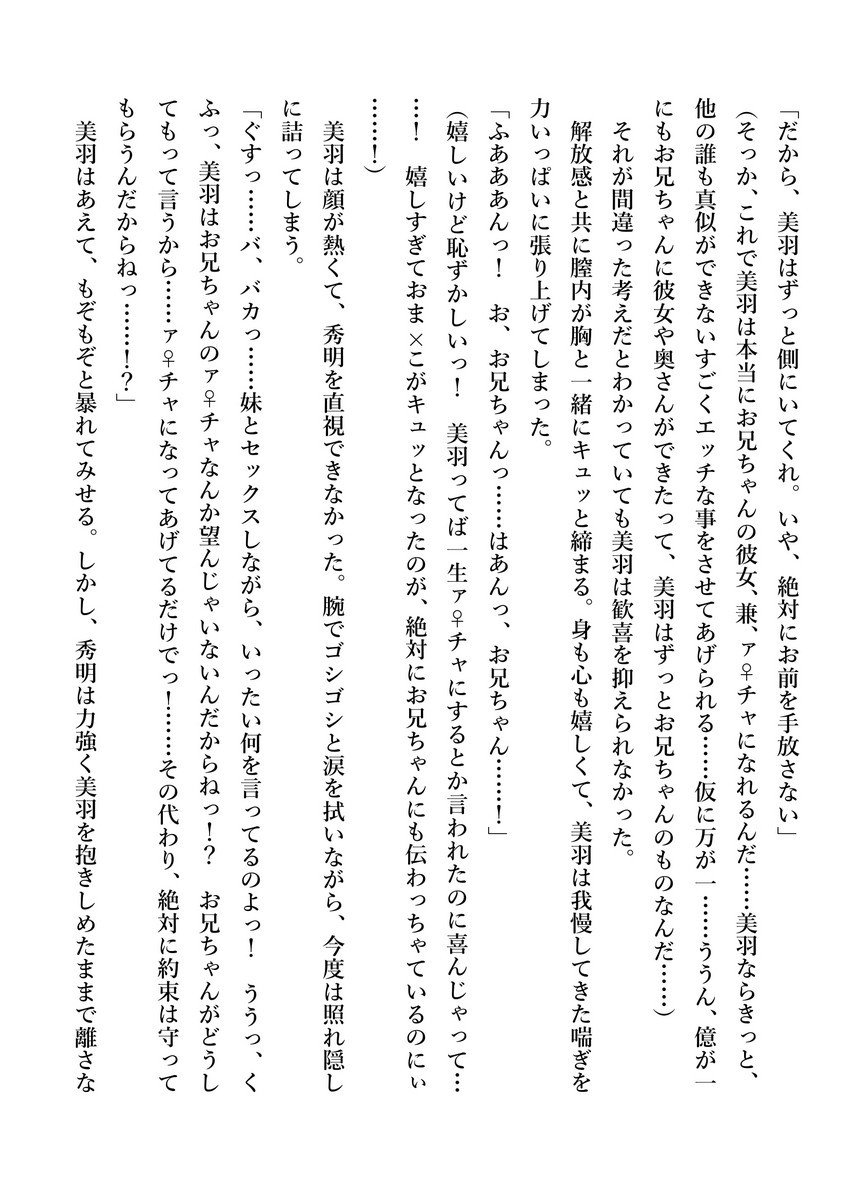 「だから、美羽はずっと側にいてくれ。いや、絶対にお前を手放さない」
(そっか、これで美羽は本当にお兄ちゃんの彼女、兼、ァ♀チャになれるんだ……美羽ならきっと、
他の誰も真似ができないすごくエッチな事をさせてあげられる……仮に万が一……ううん、億が一
にもお兄ちゃんに彼女や奥さんができたって、美羽はずっとお兄ちゃんのものなんだ……)
それが間違った考えだとわかっていても美羽は歓喜を抑えられなかった。
解放感と共に膣内が胸と一緒にキュッと締まる。身も心も嬉しくて、美羽は我慢してきた喘ぎを
力いっぱいに張り上げてしまった。
「ふあああんっ！　お、お兄ちゃんっ……はあんっ、お兄ちゃん……！」
(嬉しいけど恥ずかしいっ！　美羽ってば一生ァ♀チャにするとか言われたのに喜んじゃって…
…！　嬉しすぎておま×こがキュッとなったのが、絶対にお兄ちゃんにも伝わっちゃているのにぃ
……！)
美羽は顔が熱くて、秀明を直視できなかった。腕でゴシゴシと涙を拭いながら、今度は照れ隠し
に詰ってしまう。
「ぐすっ……バ、バカっ……妹とセックスしながら、いったい何を言ってるのよっ！　ううっ、く
ふっ、美羽はお兄ちゃんのァ♀チャなんか望んじゃいないんだからねっ！？　お兄ちゃんがどうし
てもって言うから……ァ♀チャになってあげてるだけでっ！……その代わり、絶対に約束は守って
もらうんだからねっ……！？」
美羽はあえて、もぞもぞと暴れてみせる。しかし、秀明は力強く美羽を抱きしめたままで離さな